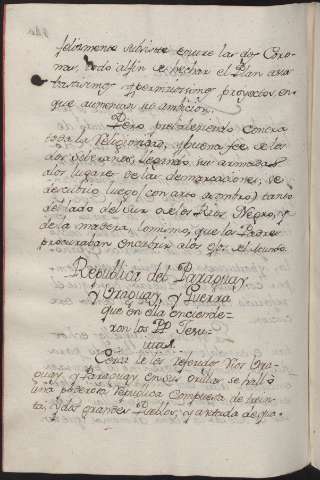 felizmente subsiste entre las dos Coro-
nas, todo al fin se hechar el Plan a sus
bastissimos y perniciosissimos proyectos, en
que aumentan su ambicion.
Pero prebaleciendo contra
toda la Religiosidad, y buena fee de los
dos soberanos, llegando sus armadas
a los lugares de las demarcaciones, se
descubrio luego (con arto asombro) tanto
del lado del Sur de los Rios Negro, y
de la madera, lo mismo, que los Padres
procuraban encubrir a los ojos de el Mundo.
Republica del Paraguay,
y Uraguay, y Guerra
que en ella encendie-
ron los PP. Jesu-
itas.
Cerca de los referidos Rios Ura-
guay, y Paraguay en sus orillas se halló
una poderosa Republica compuesta de trein-
ta, y dos grandes Pueblos, y